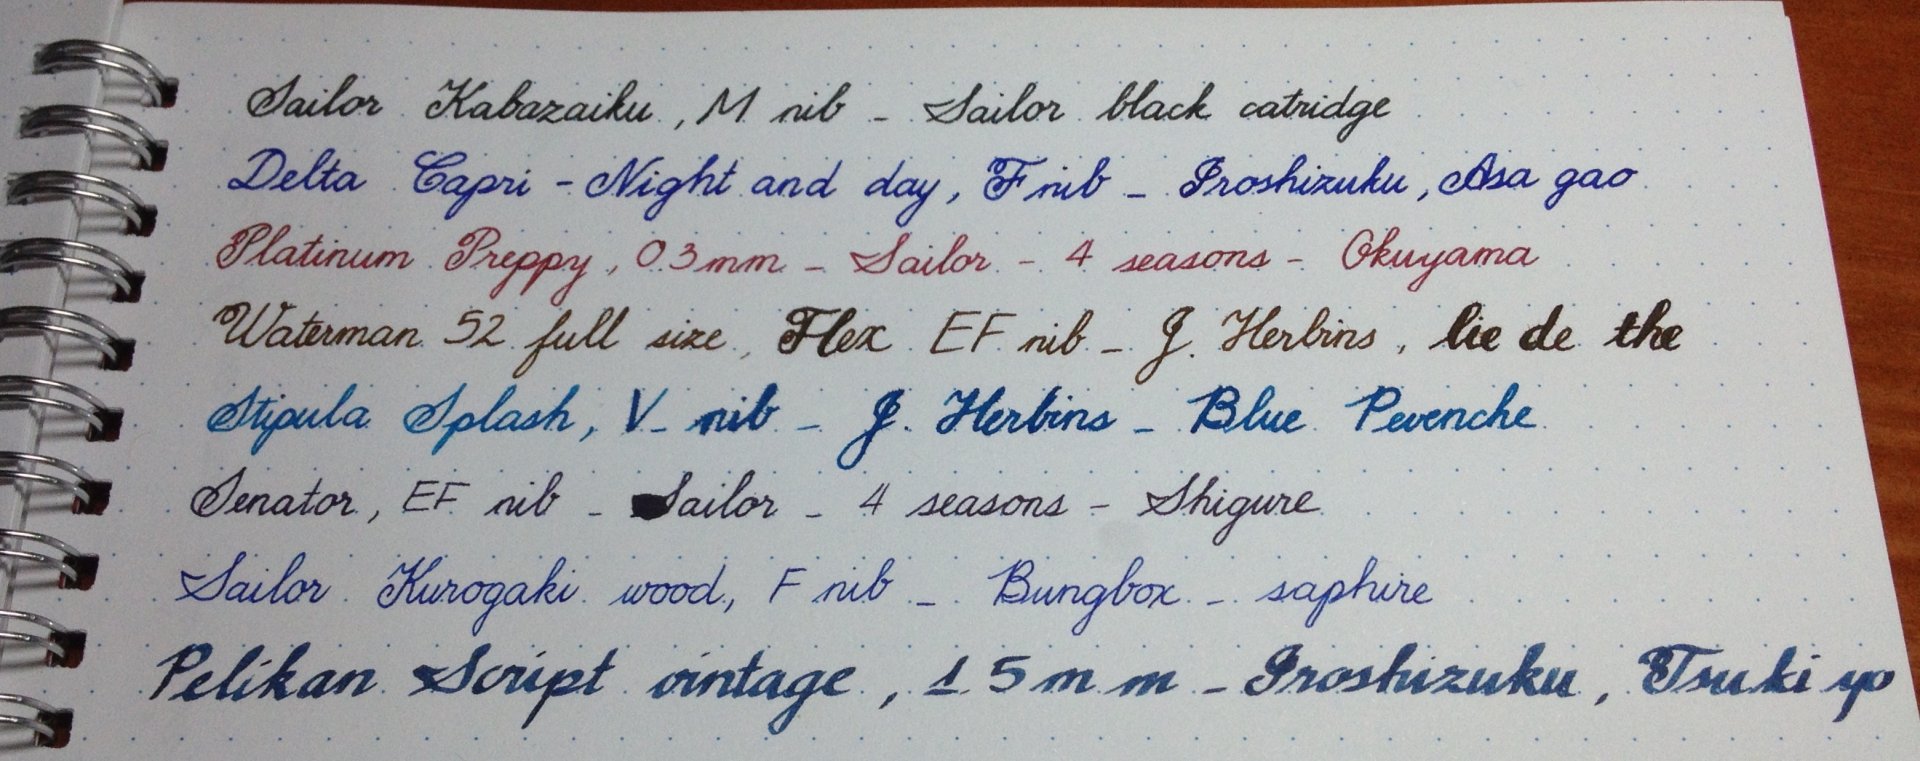 Sailor Kabazaiku, M nib - Sailor black catridge
Delta Capri - Night and day, F nib - Iroshizuku, Asa gao
Platinum Preppy, 0.3mm - Sailor - 4 seasons - Okuyama
Waterman 52 full size, Flex EF nib - J. Herbins, lie de the
Stipula Splash, V- nib - J. Herbins - Blue Pevenche
Senator, EF nib - Sailor - 4 seasons - Shigure
Sailor Kurogaki wood, F nib - Bungbox - saphire
Pelikan Script vintage, 1.5mm - Iroshizuku, Tsuki yo